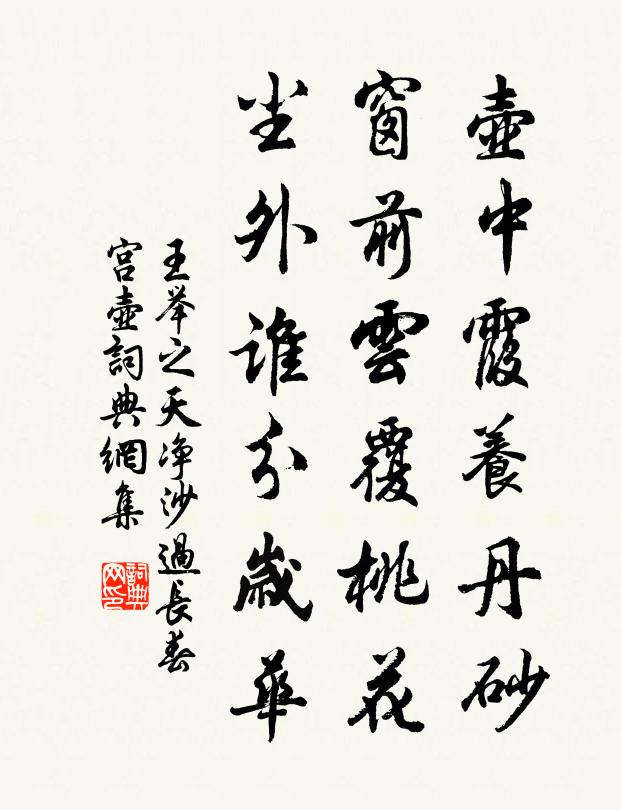 壺中霞養丹砂
窗前雲覆桃花
坐外誰分歲華
王举之天净沙過長春
宫壺詞典網集
詞典网印